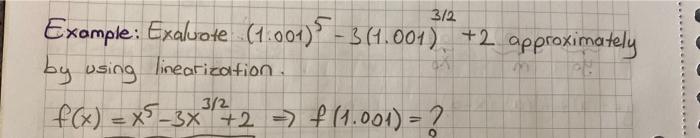 Example: Exaluate (1.001)^5 - 3(1.001)^3/2 + 2 approximately
by using linearization.
f(x) = x^5 - 3x^3/2 + 2 => f(1.001) = ?